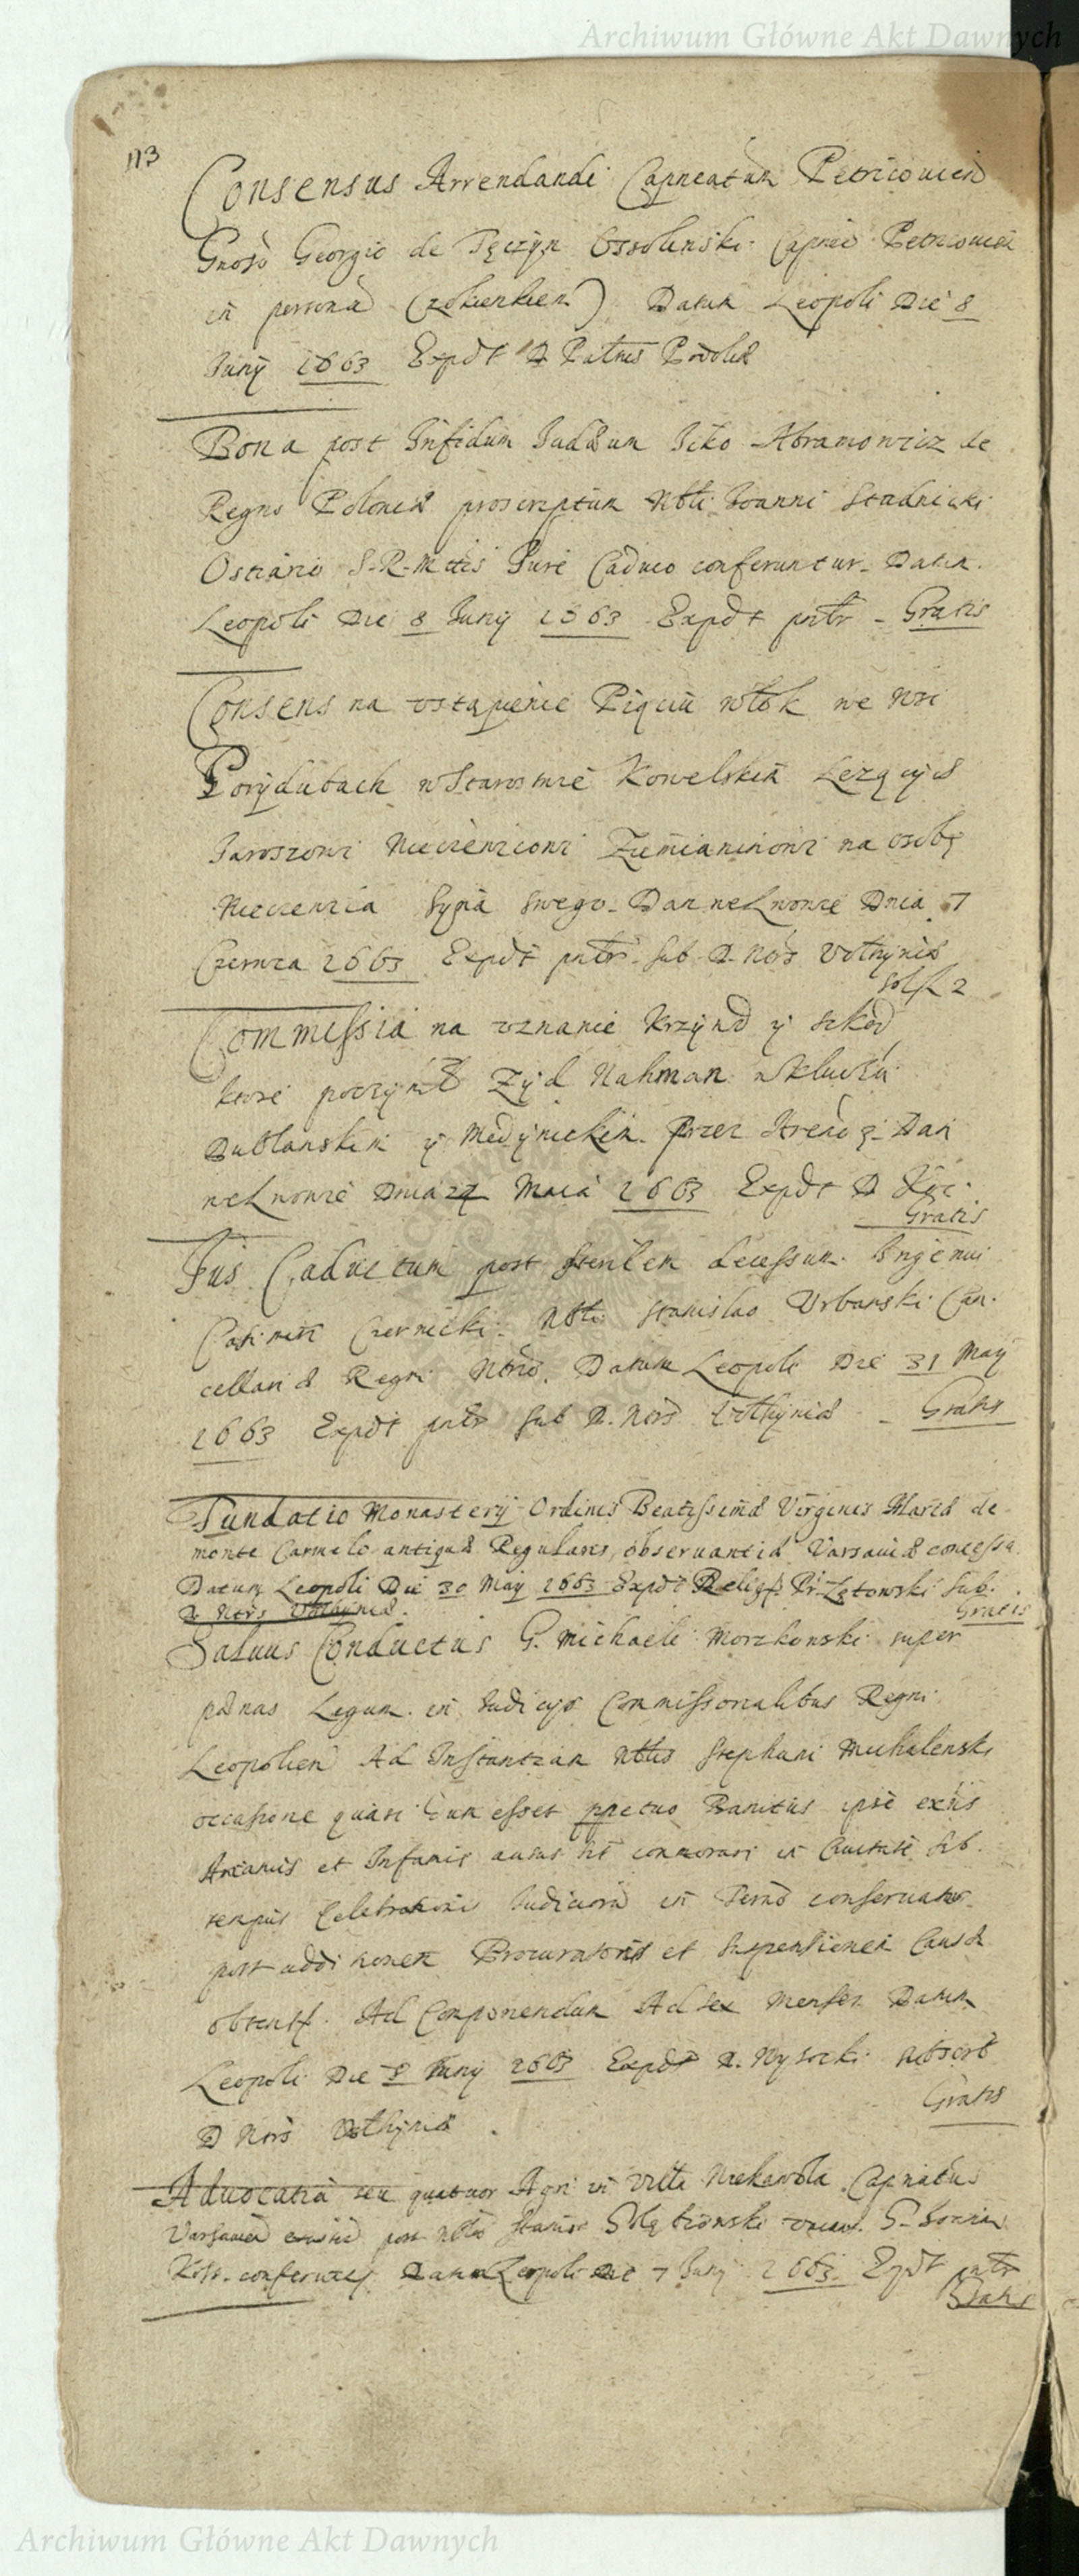 Archiwum Główne Akt Dawnych
113
Consensus Arrendandi Capneatum Petricovien
Gnoso Georgio de Tęczyn Ossolinski Capneo Petricovien
in persona Datum Leopoli Die 8
Juny 1663 Expdt D Podoliæ
Bona post Infidum Judæum Icko Abramowicz de
Regno Poloniæ proscriptum Nbli Joanni Stadnicki
Ostiario S. R. Mttis Jure Caduco conferuntur. Datum
Leopoli Die 8 Juny 1663 Expdt pntr - Gratis
Consens na ustąpienie Piąciu włok we wsi
Porydubach w Starostwie Kowelskim Lezących
Jaroszowi Ziemianinowi na osobę
Syna swego. Dan we Lwowie Dnia 7
Czerwca 1663 Expdt pntr sub D. Nors Volhyniæ
Commissia na uznanie Krzywd y szkod
ktore poczynił Zyd Nahman w Kluczu
Dublanskim y Medynickim. Przez Arendę. Dan
we Lwowie Dnia Maia 1663 Expdt D
Gratis
Jus Caductum post sterilem decessum Ingenui
Casimiri Czernicki Nbli Stanislao Urbanski Can-
cellariæ Regni Datum Leopoli Die 31 May
1663 Expdt pntr sub D. Nors Volhyniæ - Gratis
Fundatio Monastery Ordinis Beatissimæ Virginis Mariæ de
monte Carmelo antiquæ Regularis observantiæ Varsaviæ concessa
Datum Leopoli Die 30 May 1663 Expdt Sub.
D. Nors Volhyniæ. Gratis
Salvus Conductus G. Michaeli Morzkowski super
pænas Legum in Judicys Commissorialibus Regni
Leopolien Ad Instantiam Nblis Stephani Michalenski
occasione quasi cum esset ppetuo Banitus ipse
et Infamis ausus sit commorari in Civitate sub
tempus Celebrationis Judiciorum in conservatur
post Procuratoris et Suspensionem Causæ
obtent. Ad Componendum Ad sex Menses Datum
Leopoli Die 8 Juny 1663 Expdt D. Wysocki
Gratis
D Nors Volhyniæ
Advocatia seu quatuor Agri in Villa Capnatus
Varsavien post Nblm vacan.
conferuntur Datum Leopoli Die 7 Juny 1663. Expdt pntr
Gratis
Archiwum Główne Akt Dawnych